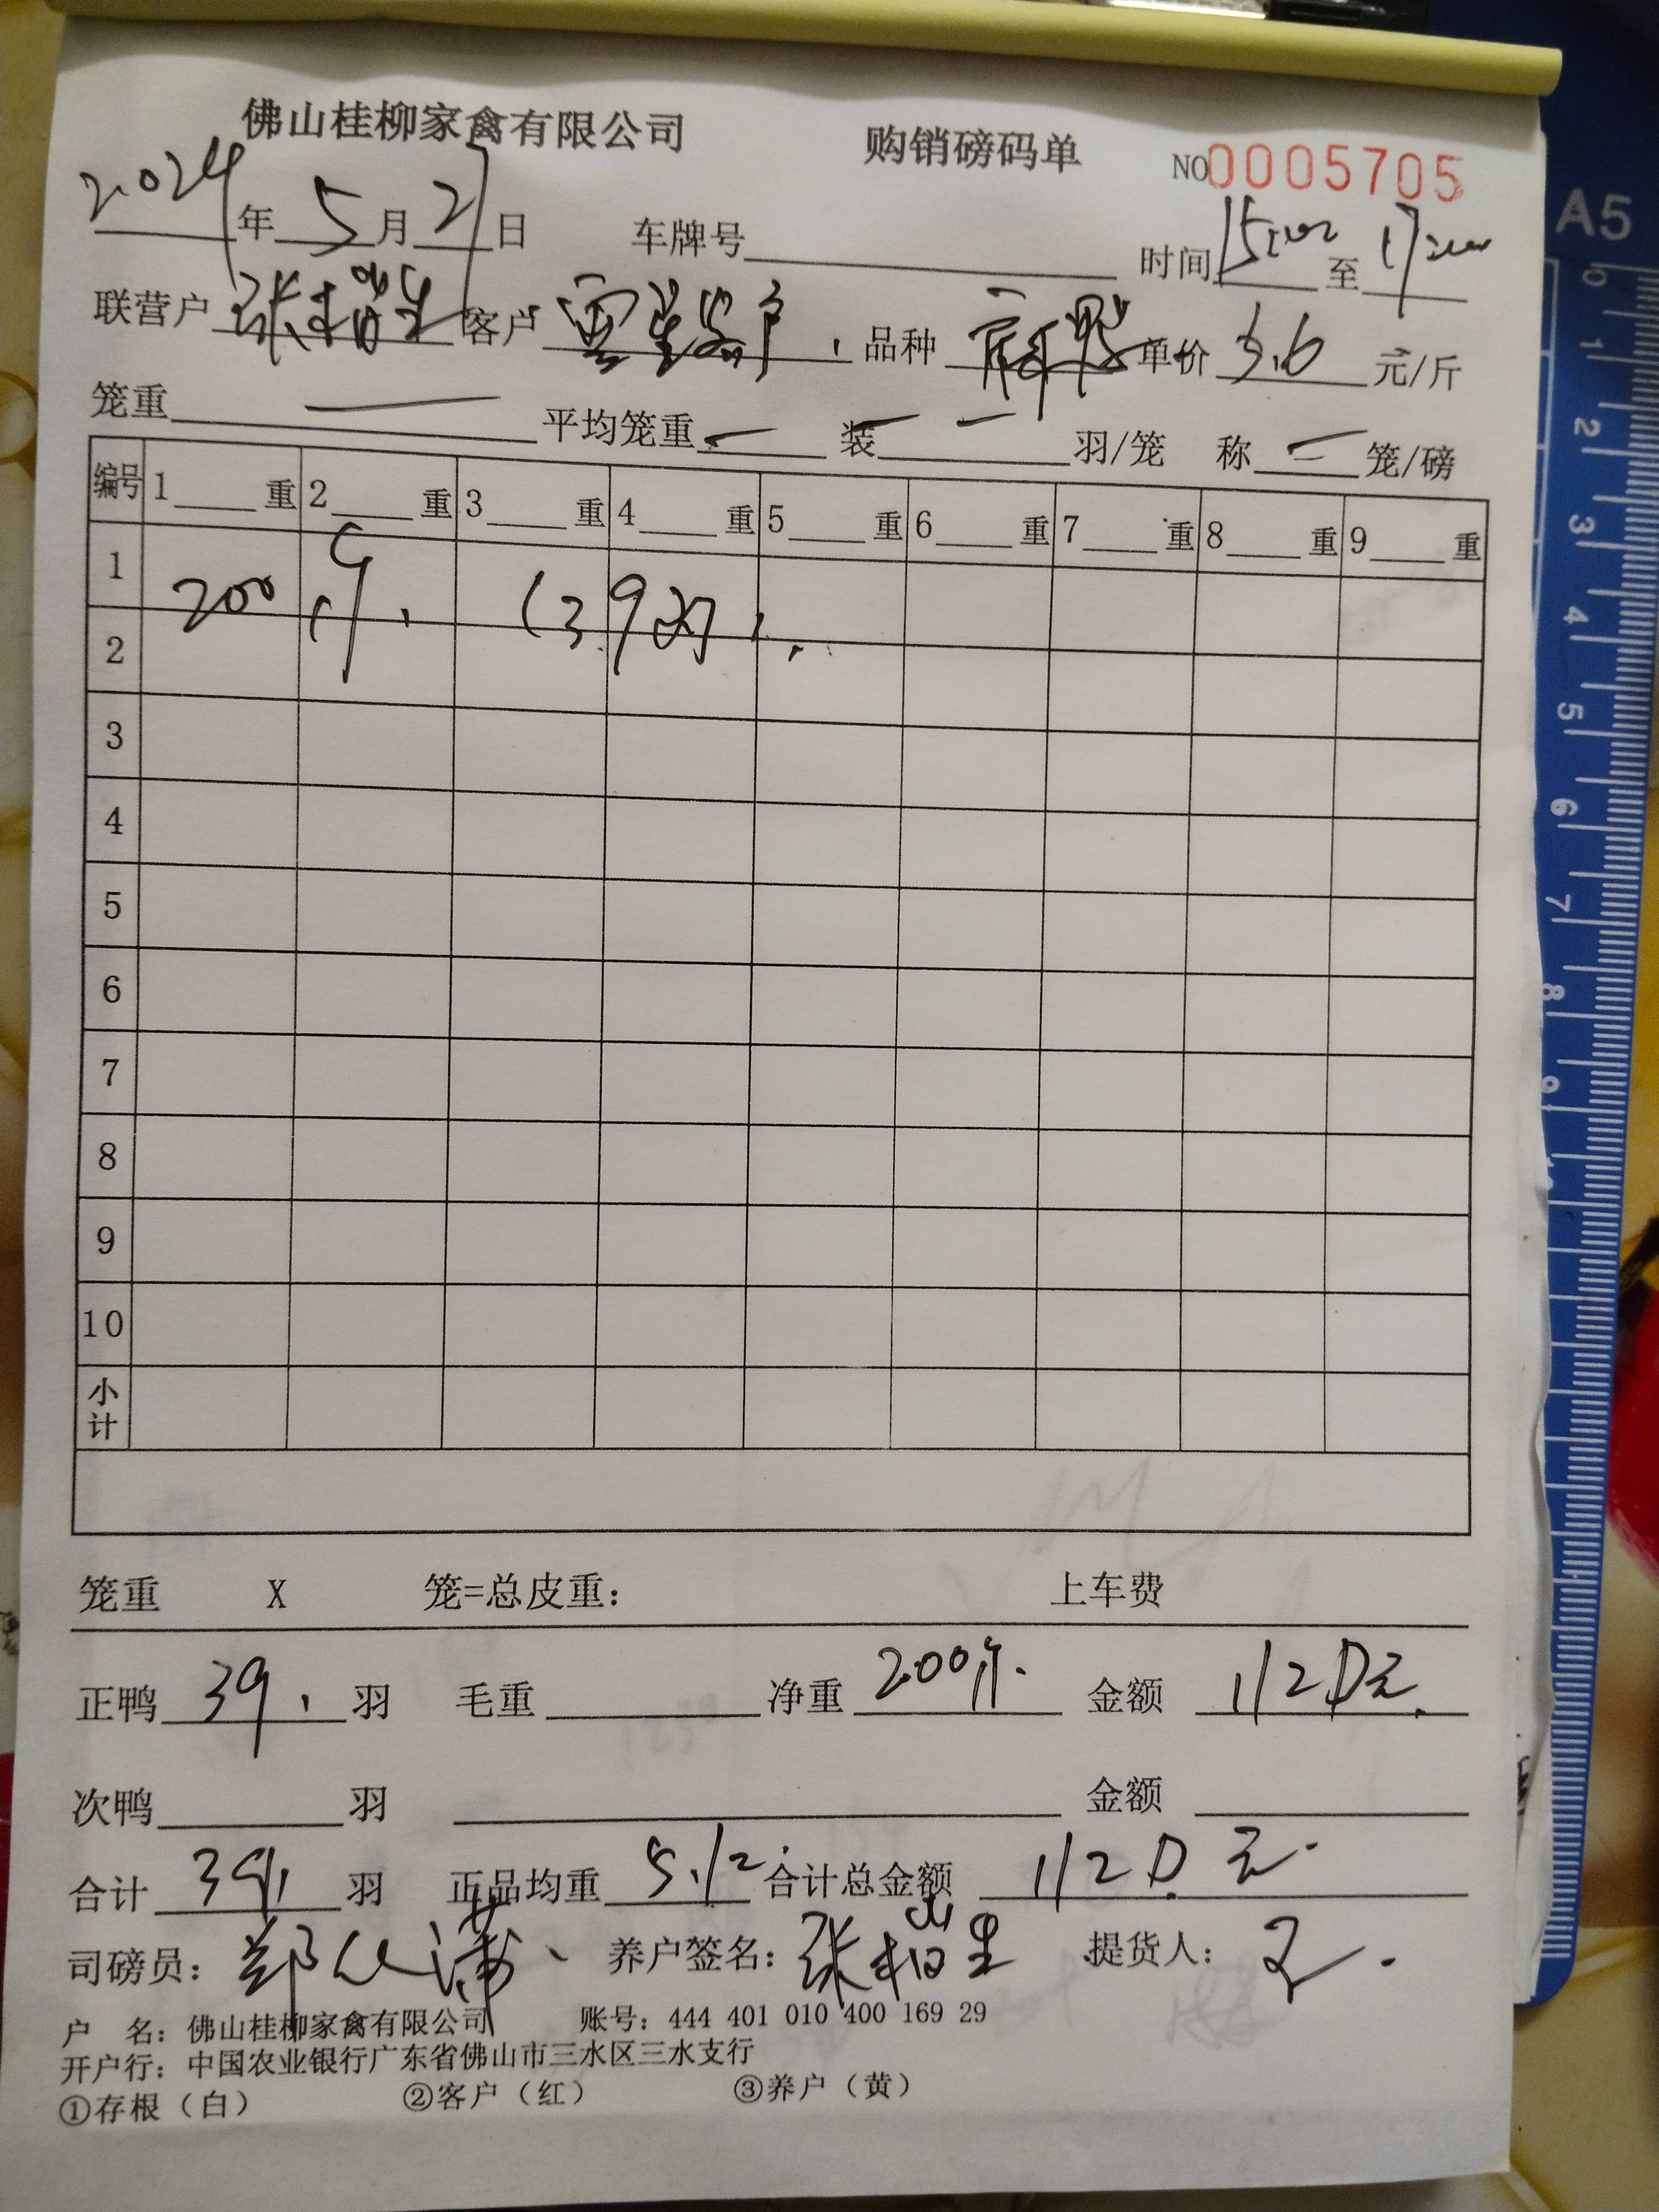 佛山桂柳家禽有限公司 购销磅码单 NO0005705
2024年5月27日 车牌号 时间15:00至17:00
联营户 张 生 客户 客户 品种 麻鸭 单价 5.6 元/斤
笼重 — 平均笼重 — 装 — 羽/笼 称 — 笼/磅
编号 1 重 2 重 3 重 4 重 5 重 6 重 7 重 8 重 9 重
1
200斤. (39羽).
2
3
4
5
6
7
8
9
10
小计
笼重 X 笼=总皮重: 上车费
正鸭 39 羽 毛重 净重 200斤. 金额 1120元.
次鸭 羽 金额
合计 39 羽 正品均重 5.12 合计总金额 1120元.
司磅员: 郑 养户签名: 张 生 提货人:
户 名: 佛山桂柳家禽有限公司 账号: 444 401 010 400 169 29
开户行: 中国农业银行广东省佛山市三水区三水支行
①存根(白) ②客户(红) ③养户(黄)